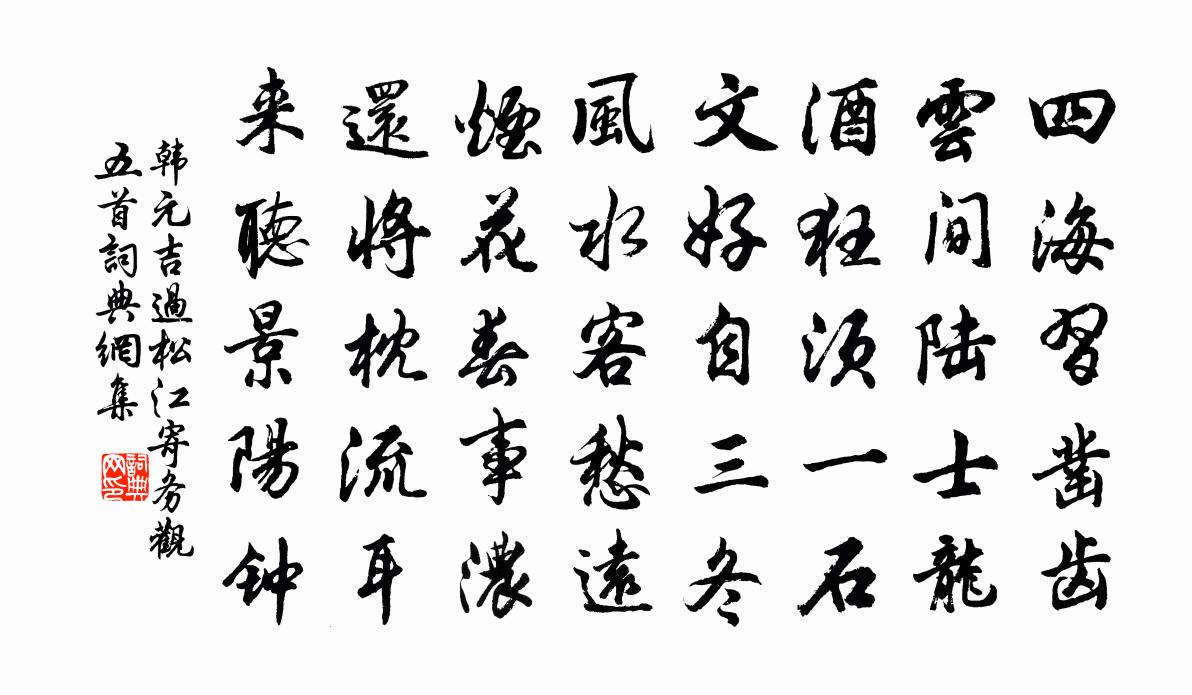 四海習凿齿
雲间陆士龍
酒狂须一石
文好自三冬
風水客愁遠
煙花春事濃
還將枕流耳
来聽景陽钟
韩元吉過松江寄务觀
五首詞典網集
詞典网印